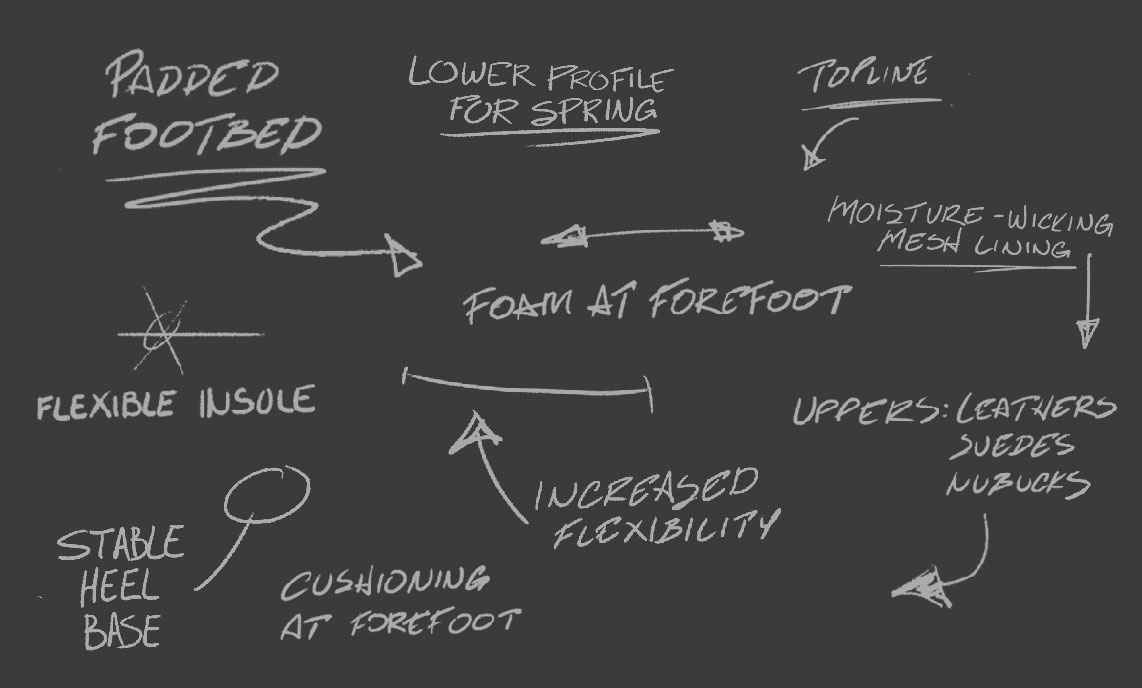 PADDED
FOOTBED
LOWER PROFILE
FOR SPRING
TOPLINE
MOISTURE-WICKING
MESH LINING
FOAM AT FOREFOOT
FLEXIBLE INSOLE
UPPERS: LEATHERS
SUEDES
NUBUCKS
INCREASED
FLEXIBILITY
STABLE
HEEL
BASE
CUSHIONING
AT FOREFOOT